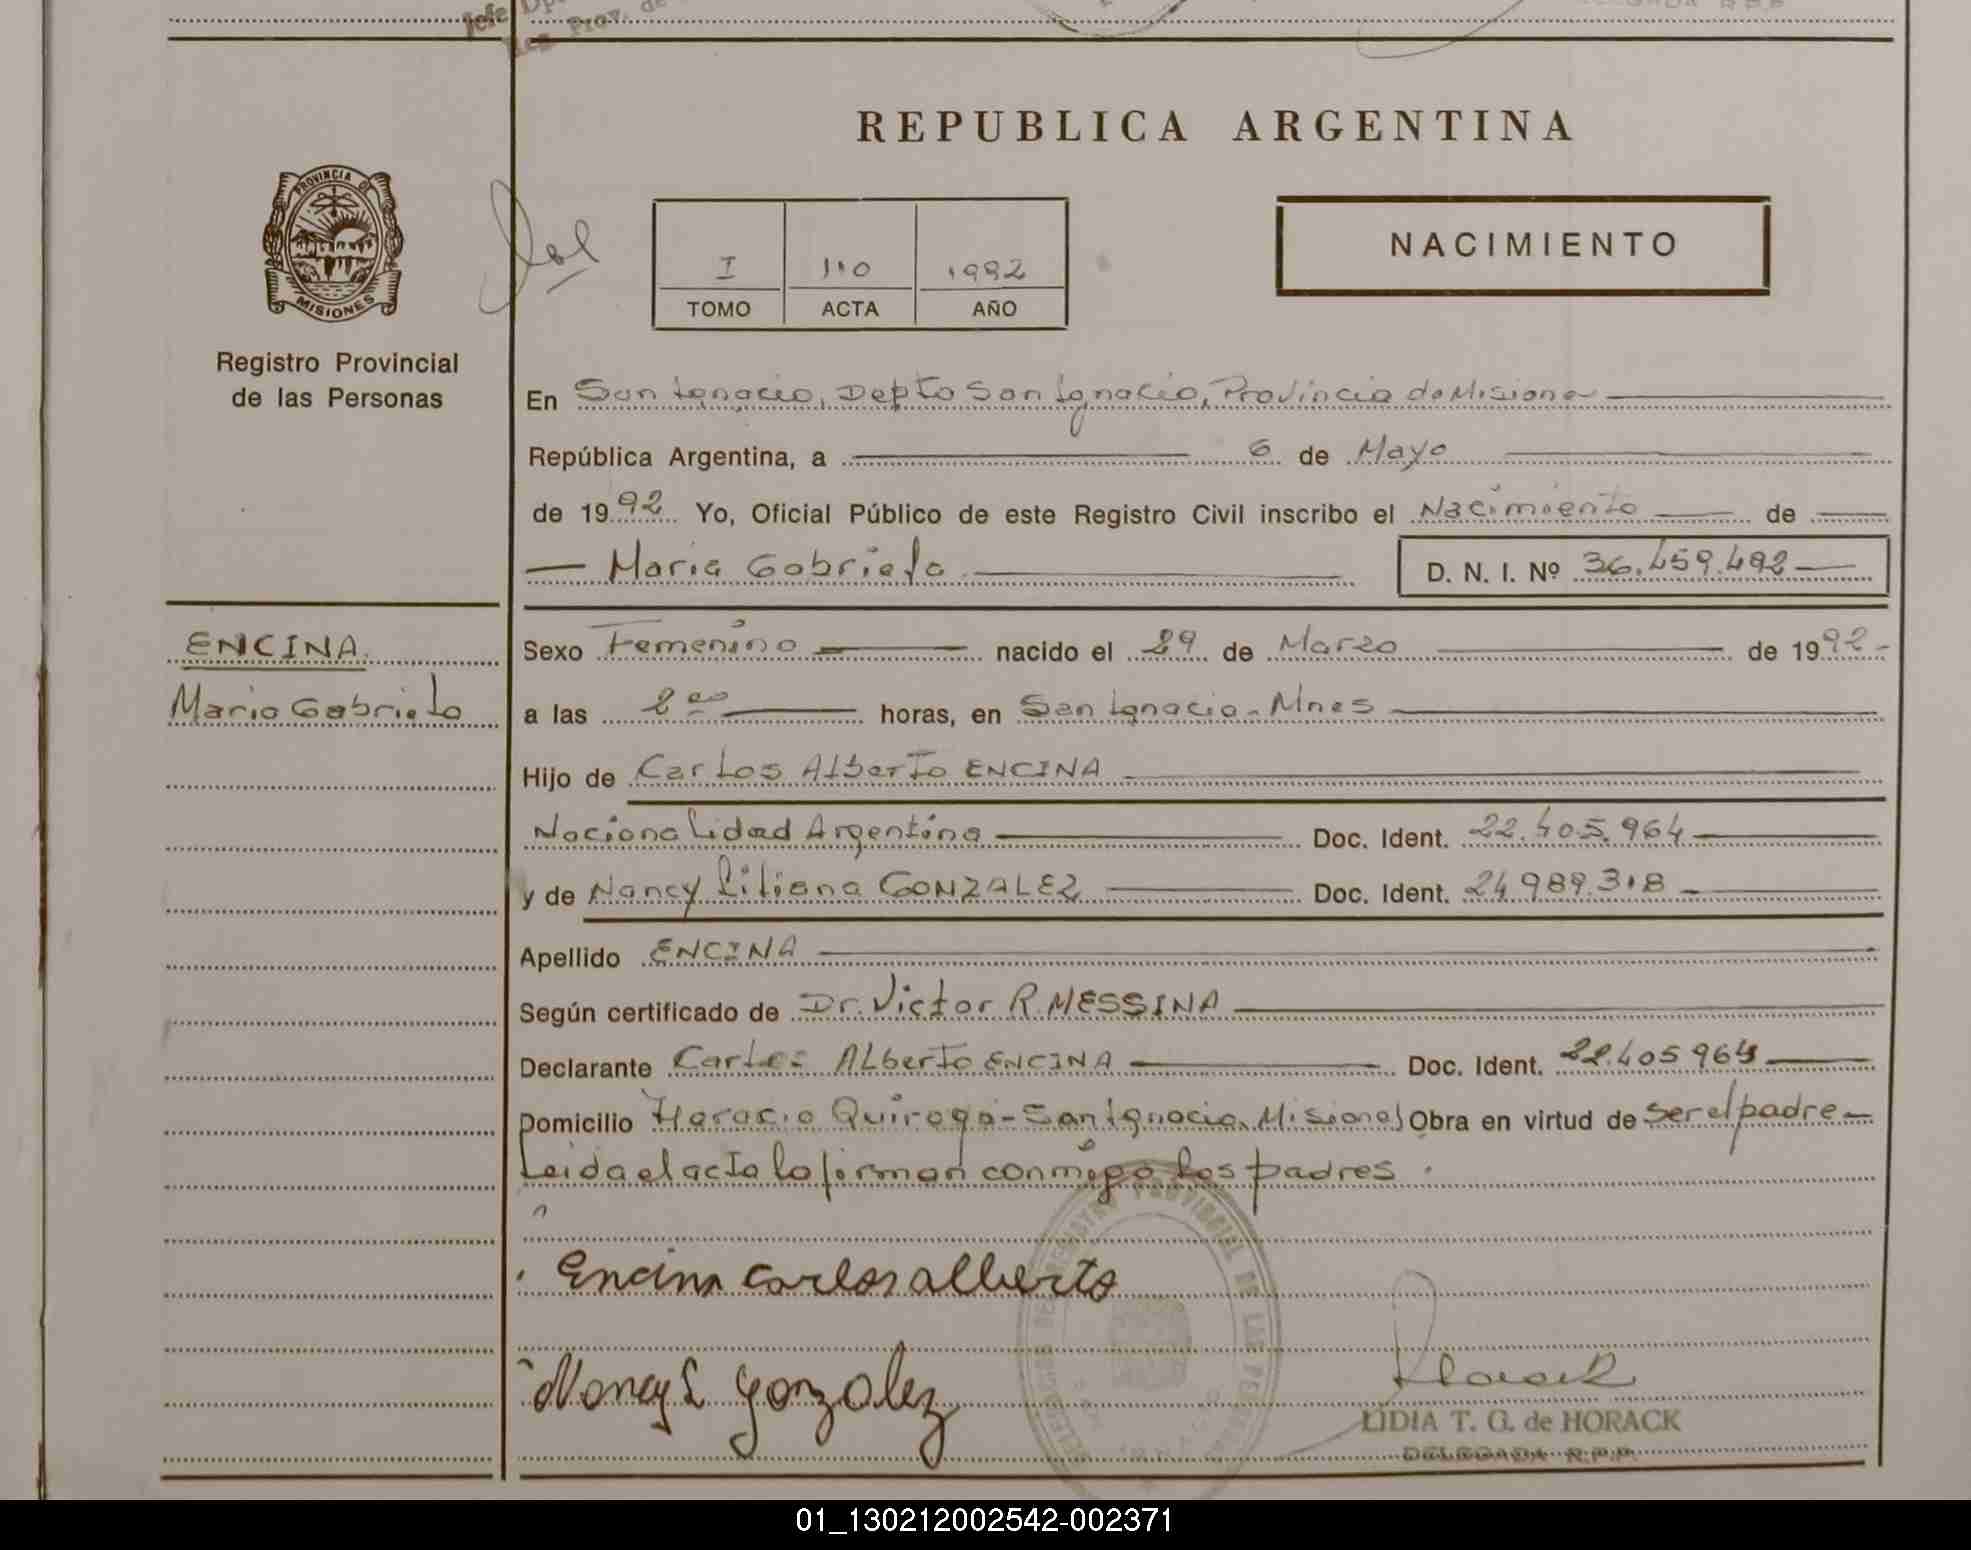 Jefe Dp
Reg. Prov. de
REPUBLICA ARGENTINA
PROVINCIA DE
MISIONES
I 110 1992
TOMO ACTA AÑO
NACIMIENTO
Registro Provincial
de las Personas
En San Ignacio, Depto San Ignacio, Provincia de Misiones
República Argentina, a 6 de Mayo
de 1992 Yo, Oficial Público de este Registro Civil inscribo el Nacimiento de
Maria Gabriela D. N. I. Nº 36.459.492
ENCINA
Maria Gabriela
Sexo Femenino nacido el 29 de Marzo de 1992
a las 2 00 horas, en San Ignacio - Mnes
Hijo de Carlos Alberto ENCINA
Nacionalidad Argentina Doc. Ident. 22.405.964
y de Nancy Liliana GONZALEZ Doc. Ident. 24.989.318
Apellido ENCINA
Según certificado de Dr. Victor R. MESSINA
Declarante Carlos Alberto ENCINA Doc. Ident. 22.405964
Domicilio Horacio Quiroga - San Ignacio, Misiones Obra en virtud de ser el padre
Leida el acta la firman conmigo los padres.
Encina Carlos alberto
Nancy L Gonzalez
LIDIA T. G. de HORACK
DELEGADA R.P.P.
01_130212002542-002371